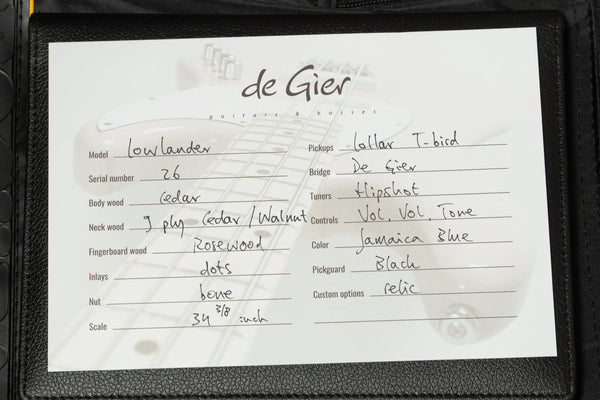 de Gier
guitars & basses
Model lowlander
Serial number 26
Body wood Cedar
Neck wood 9 ply Cedar / Walnut
Fingerboard wood Rosewood
Inlays dots
Nut bone
Scale 34 3/8 inch
Pickups Lollar T-bird
Bridge De Gier
Tuners Hipshot
Controls Vol, Vol, Tone
Color Jamaica Blue
Pickguard Black
Custom options relic